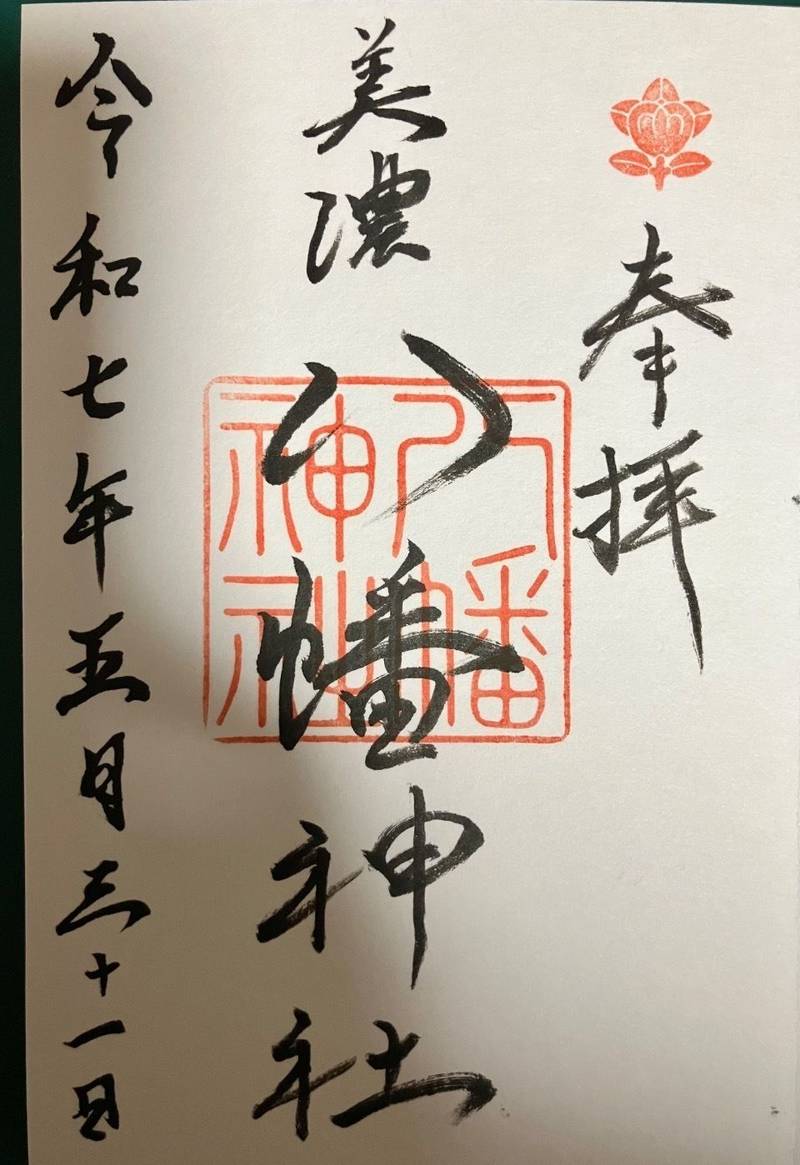 奉拝
美濃
八幡神社
八幡
神社
令和七年五月三十一日